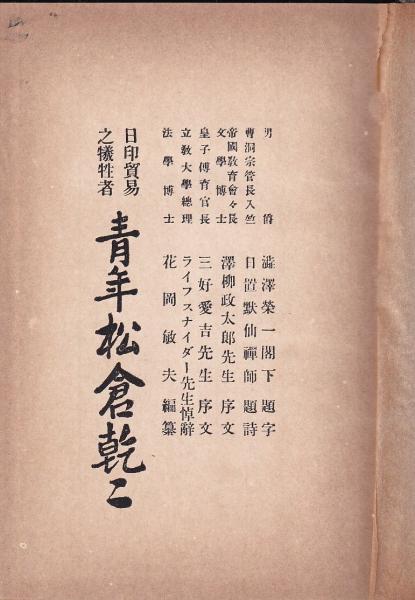 男爵 澁澤榮一閣下題字
曹洞宗管長入竺 日置默仙禪師題詩
帝國敎育會々長
文學博士 澤柳政太郎先生序文
皇子傅育官長 三好愛吉先生序文
立敎大學總理 ライフスナイダー先生悼辭
法學博士 花岡敏夫編纂
日印貿易
之犠牲者
青年松倉乾二